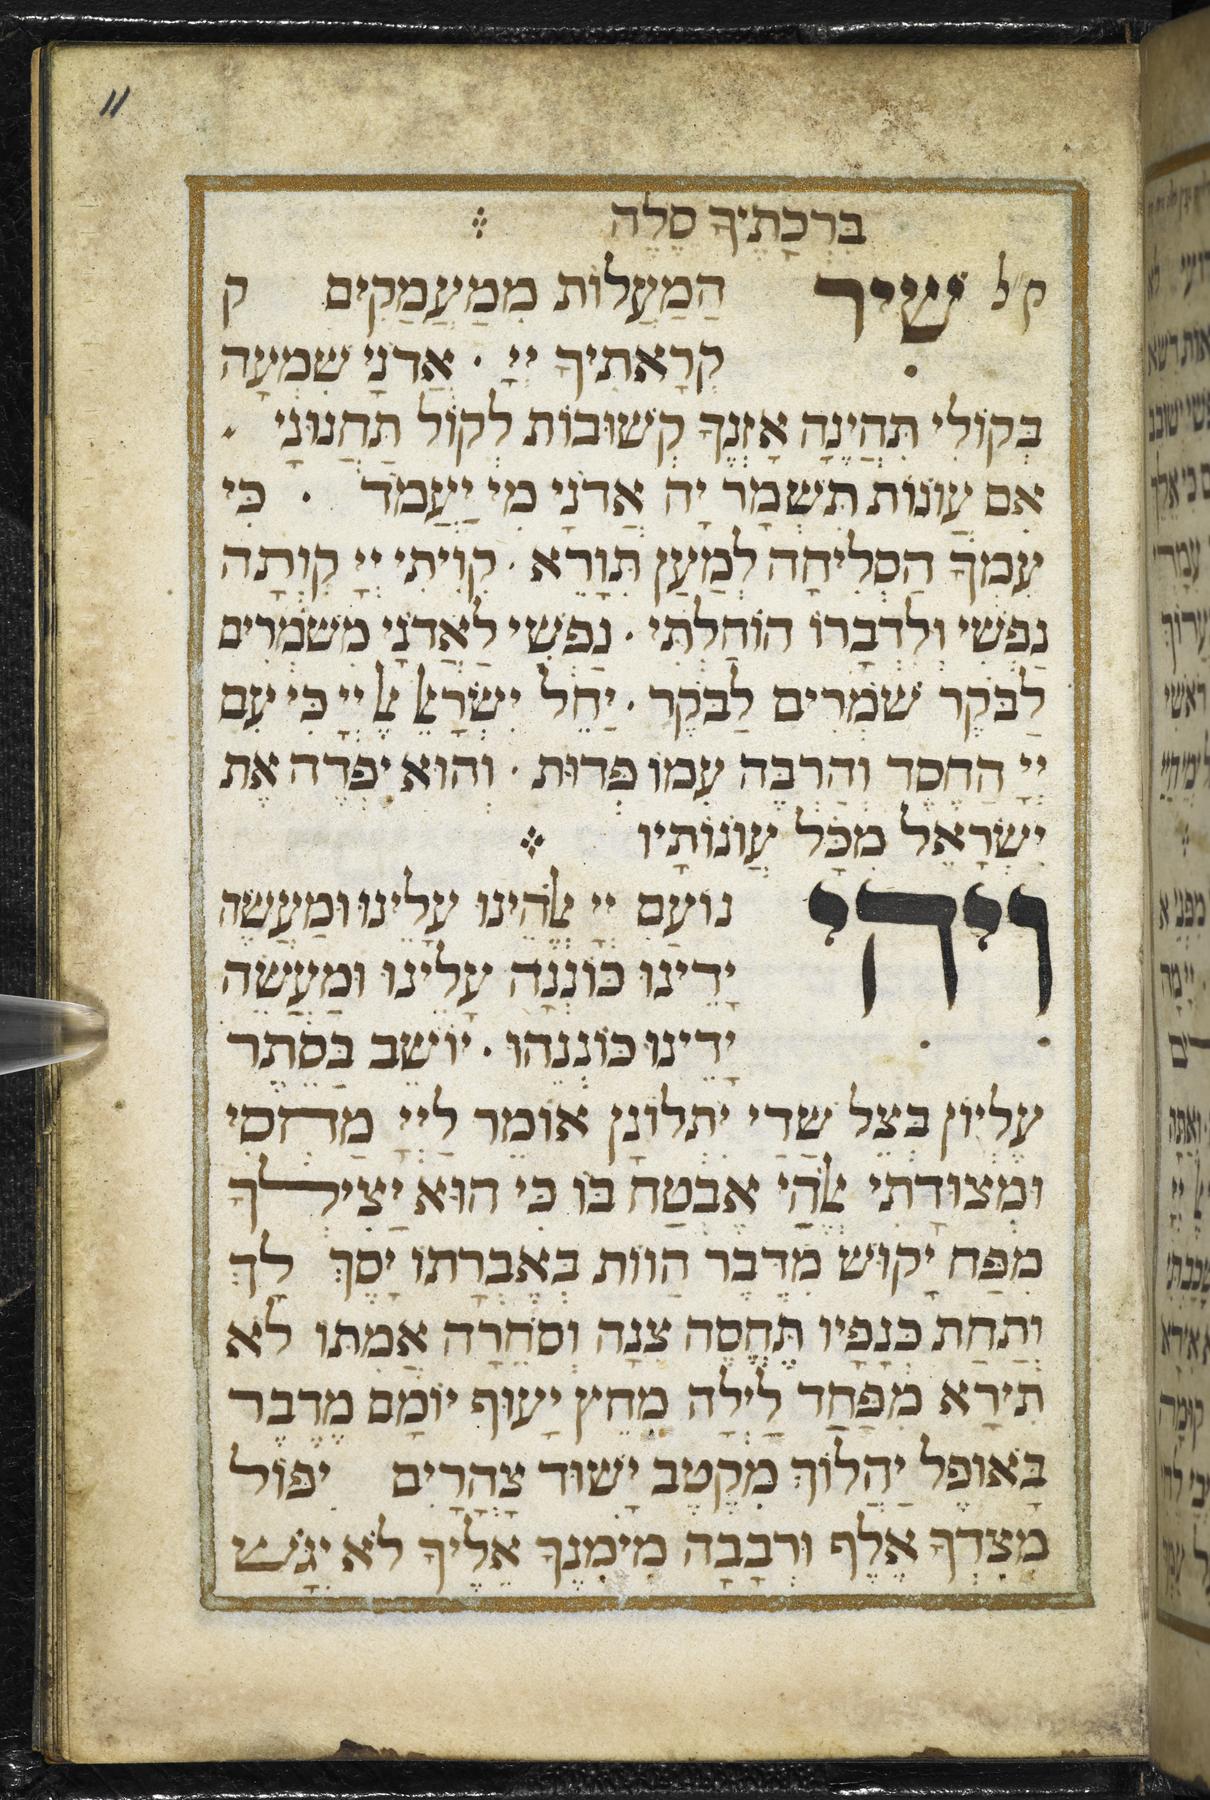 11
בִּרְכָתֶיךָ סֶלָה
ק״ל שִׁיר הַמַעֲלוֹת מִמַעֲמַקִים ק
קְרָאתִיךָ יְיָ . אֲדֹנָי שִׁמְעָה
בְּקוֹלִי תִּהֲיֶנָה אָזְנֶךָ קְשׁוּבוֹת לְקוֹל תַּחֲנוּנָי .
אִם עֲוֹנוֹת תִּשְׁמָר יָה אֲדֹנָי מִי יַעֲמֹד . כִּי
עִמְךָ הַסְלִיחָה לְמַעַן תִּוָרֵא . קִוִּיתִי יְיָ קִוְתָה
נַפְשִׁי וְלִדְבָרוֹ הוֹחַלְתִּי . נַפְשִׁי לַאֲדֹנָי מִשֹׁמְרִים
לַבֹּקֶר שֹׁמְרִים לַבֹּקֶר . יַחֵל יִשְׂרָאֵל אֶל יְיָ כִּי עִם
יְיָ הַחֶסֶד וְהַרְבֵּה עִמוֹ פְּדוּת . וְהוּא יִפְדֶה אֶת
יִשְׂרָאֵל מִכָּל עֲוֹנוֹתָיו
וִיהִי נוֹעַם יְיָ אֱלֹהֵינוּ עָלֵינוּ וּמַעֲשֵׂה
יָדֵינוּ כּוֹנְנָה עָלֵינוּ וּמַעֲשֵׂה
יָדֵינוּ כּוֹנְנֵהוּ . יוֹשֵׁב בְּסֵתֶר
עֶלְיוֹן בְּצֵל שַׁדַי יִתְלוֹנָן אוֹמֵר לַיְיָ מַחְסִי
וּמְצוּדָתִי אֱלֹהַי אֶבְטַח בּוֹ כִּי הוּא יַצִילְךָ
מִפַּח יָקוּשׁ מִדֶּבֶר הַוּוֹת בְּאֶבְרָתוֹ יָסֶךְ לָךְ
וְתַחַת כְּנָפָיו תֶּחֱסֶה צִנָה וְסֹחֵרָה אֲמִתּוֹ לֹא
תִירָא מִפַּחַד לַיְלָה מֵחֵץ יָעוּף יוֹמָם מִדֶבֶר
בָּאוֹפֶל יַהֲלוֹךְ מִקֶטֶב יָשׁוּד צָהֳרָיִם יִפּוֹל
מִצִדְךָ אֶלֶף וּרְבָבָה מִימִנֶךָ אֵלֶיךָ לֹא יִגָשׁ